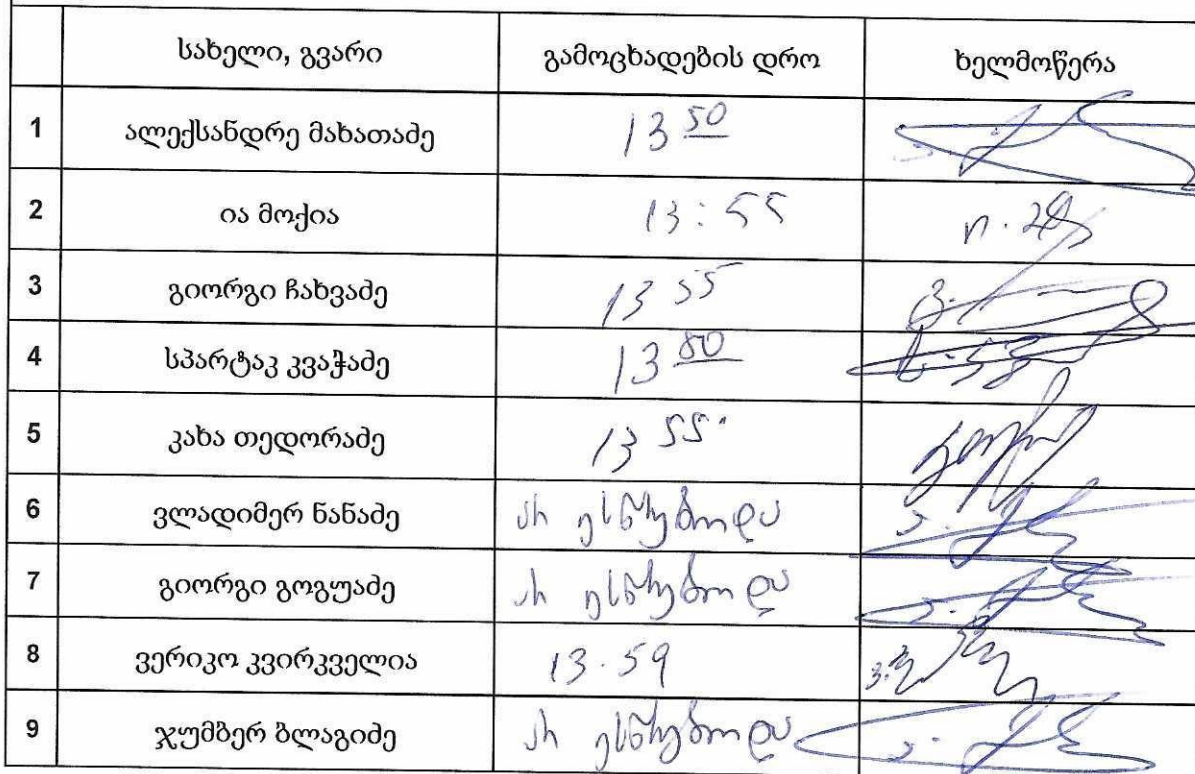 სახელი, გვარი გამოცხადების დრო ხელმოწერა
1 ალექსანდრე მახათაძე 13 50
2 ია მოქია 13:55
3 გიორგი ჩახვაძე 13 55
4 სპარტაკ კვაჭაძე 13
5 კახა თედორაძე 13 55
6 ვლადიმერ ნანაძე არ ესწრებოდა
7 გიორგი გოგუაძე არ ესწრებოდა
8 ვერიკო კვირკველია 13.59
9 ჯუმბერ ბლაგიძე არ ესწრებოდა